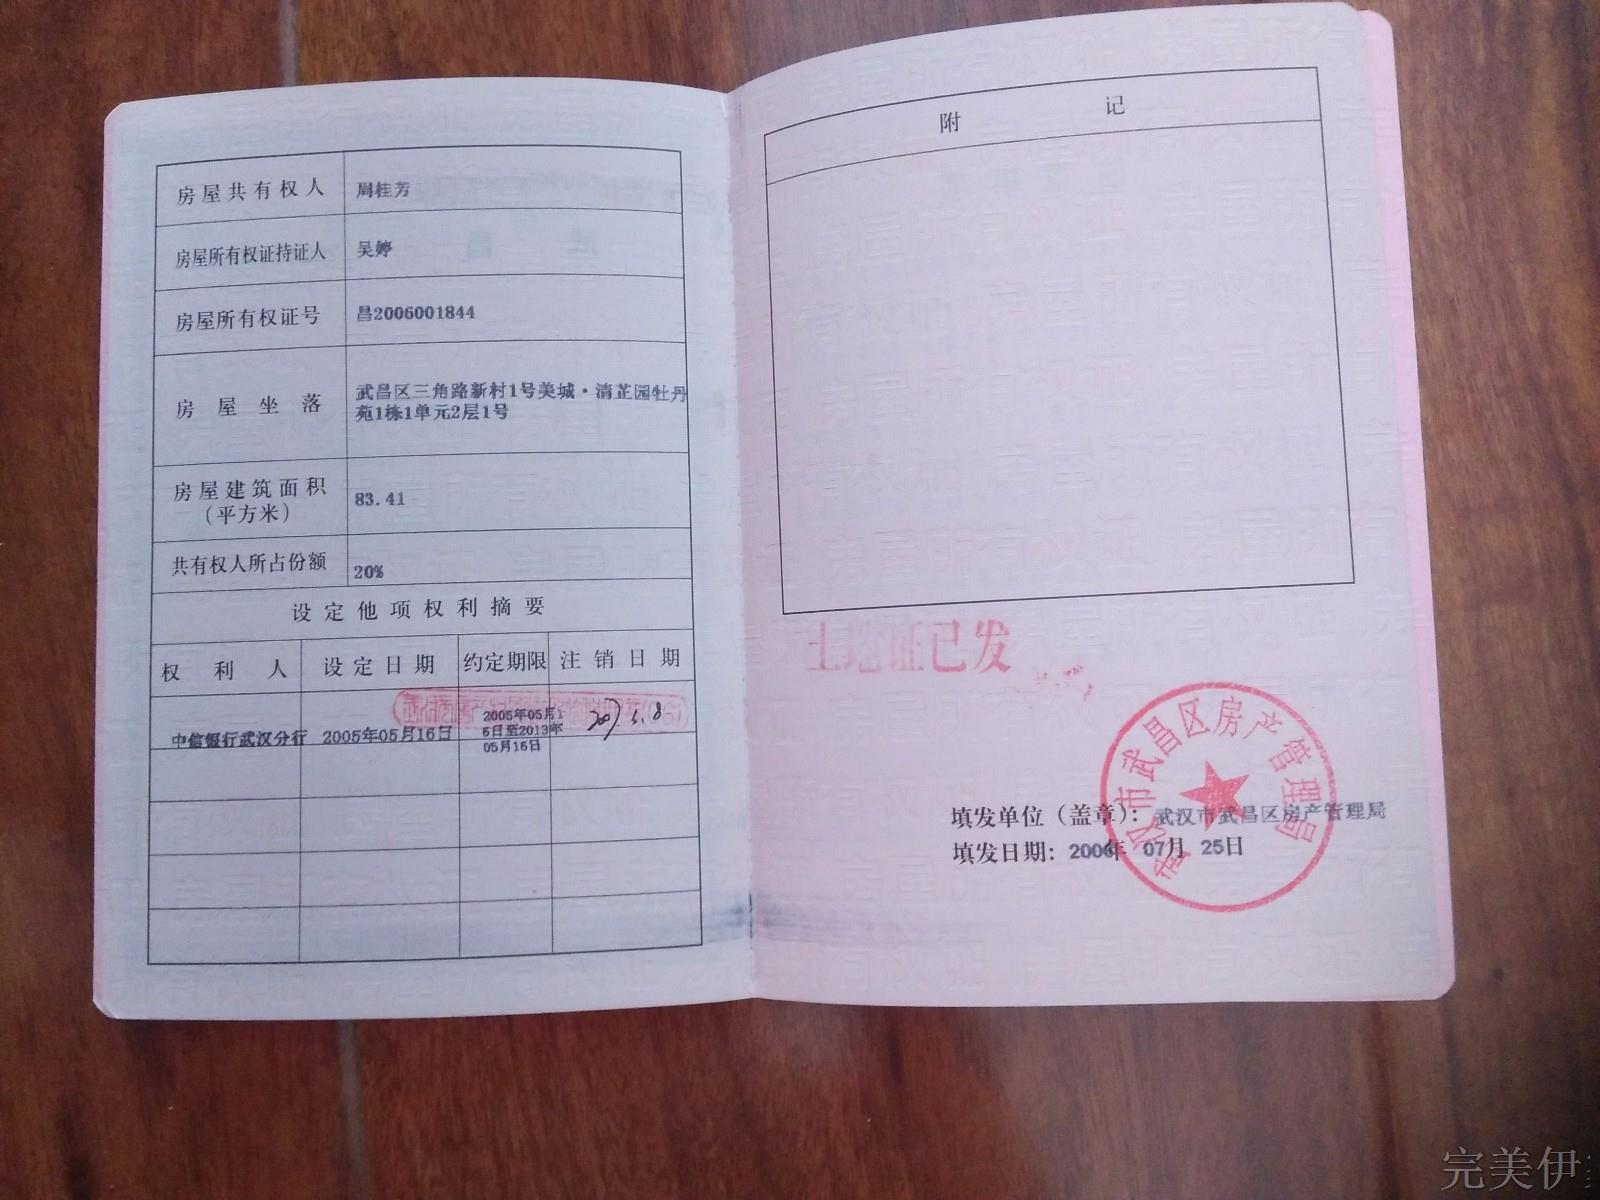 房屋共有权人 周桂芳
房屋所有权证持证人 吴婷
房屋所有权证号 昌2006001844
房屋坐落 武昌区三角路新村1号美城·清芷园牡丹
苑1栋1单元2层1号
房屋建筑面积
(平方米) 83.41
共有权人所占份额 20%
设定他项权利摘要
权利人 设定日期 约定期限 注销日期
中信银行武汉分行 2005年05月16日 2005年05月1
6日至2013年
05月16日
附记
土地证已发
武汉市武昌区房产管理局
填发单位(盖章): 武汉市武昌区房产管理局
填发日期: 2006年 07月 25日
完美伊